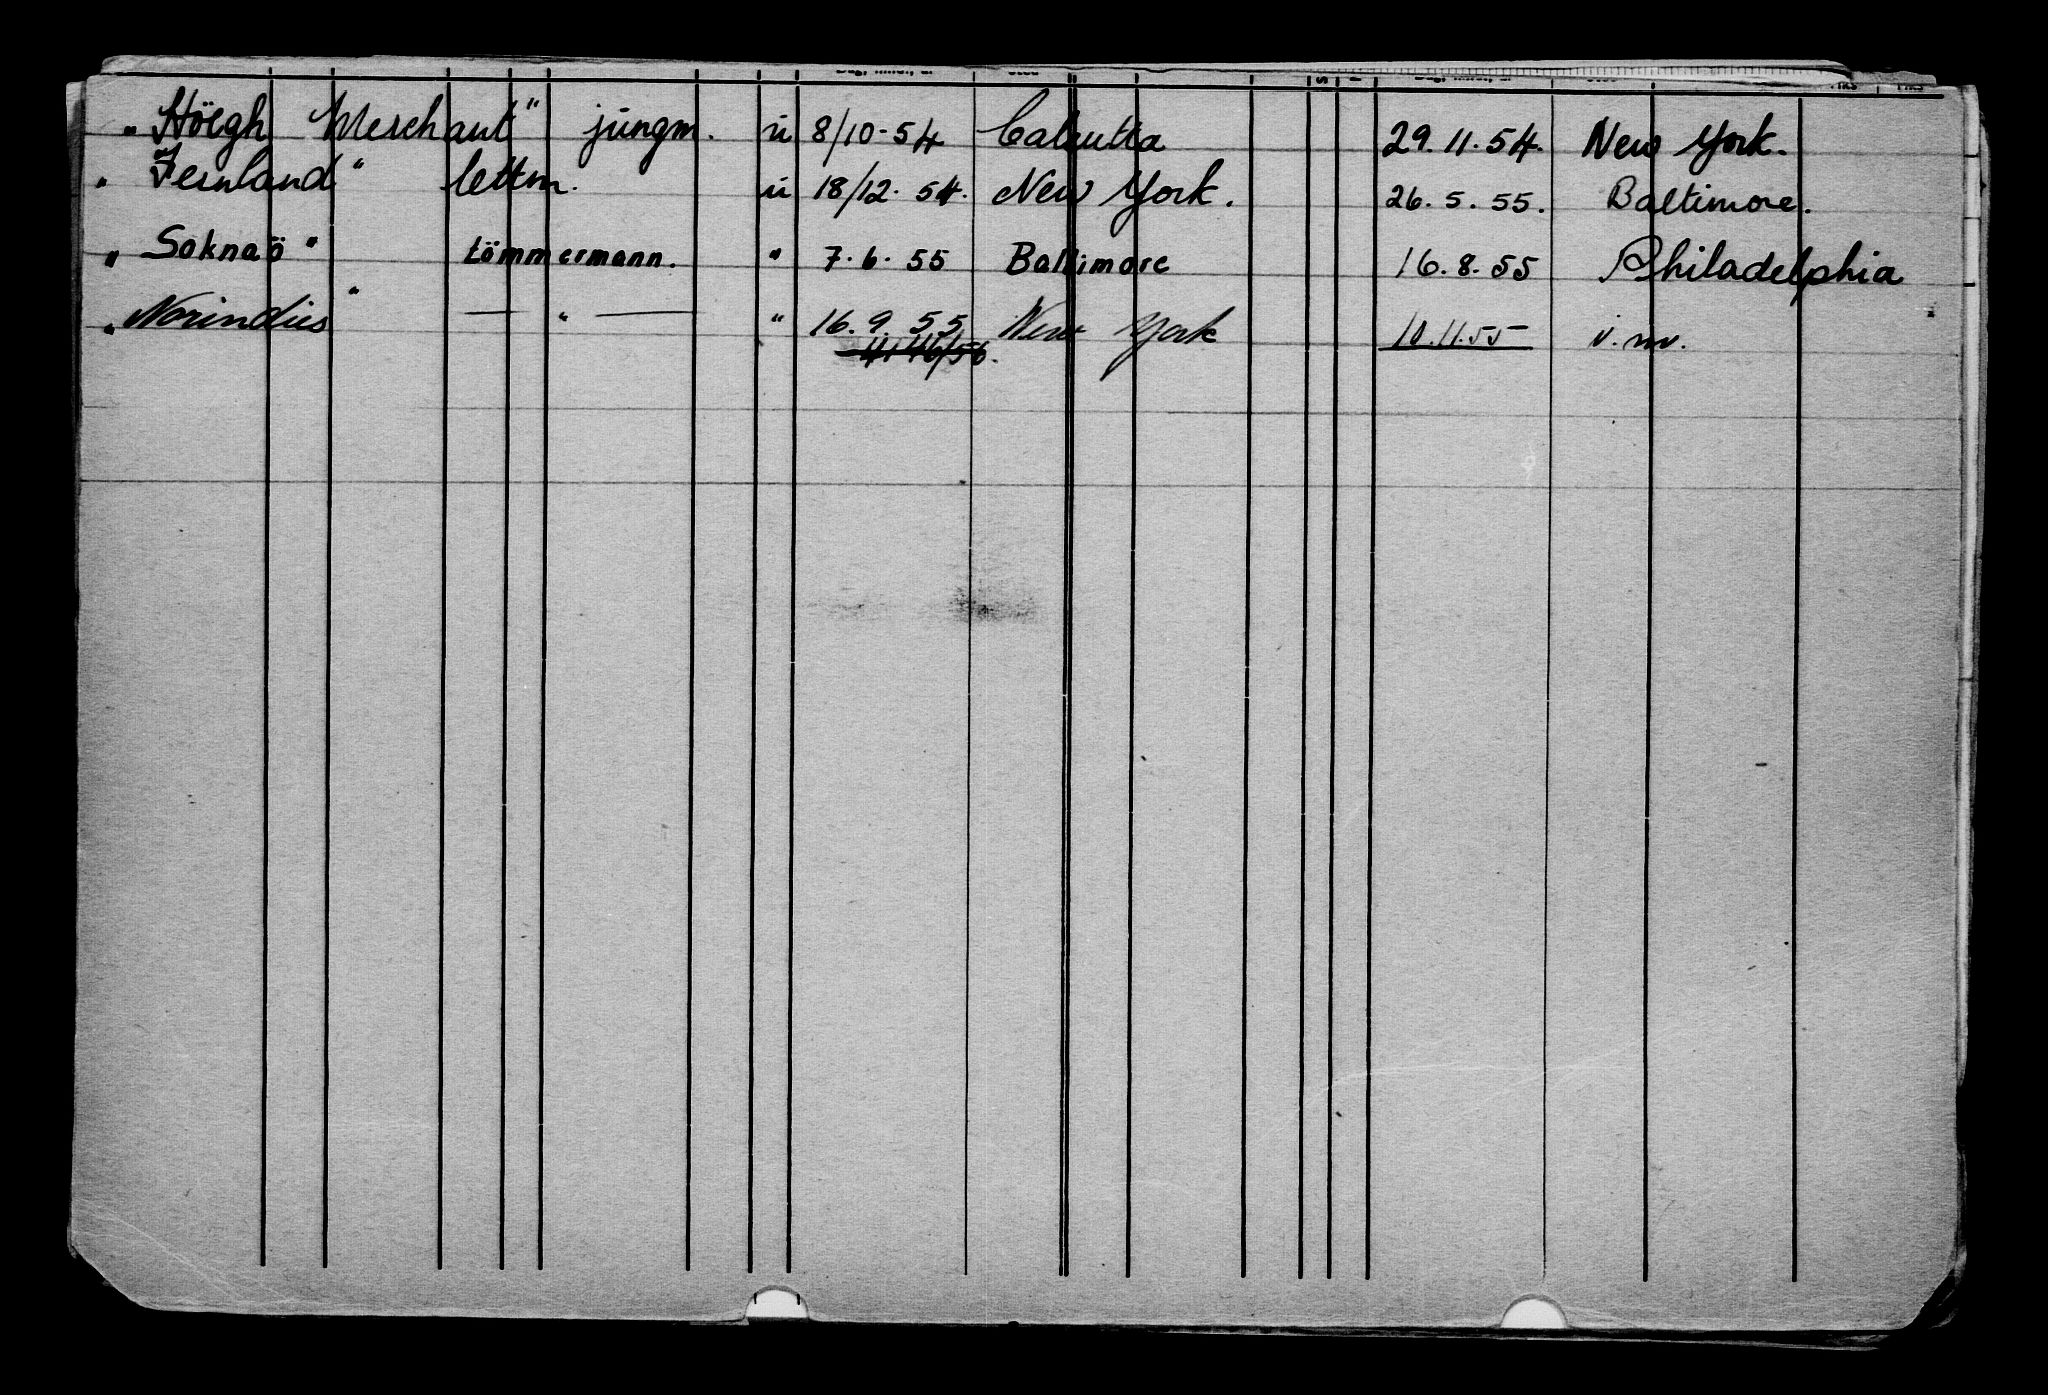 „ Höegh Merchant" jungm. ü 8/10-54 Calcutta 29.11.54. New York.
„ Fernland" lettm. ü 18/12.54. New York. 26.5.55. Baltimore.
„ Soknaö" tömmermann. " 7.6.55 Baltimore 16.8.55 Philadelphia
„ Norindies" — " — " 16.9.55 New York 10.11.55 i.nv.